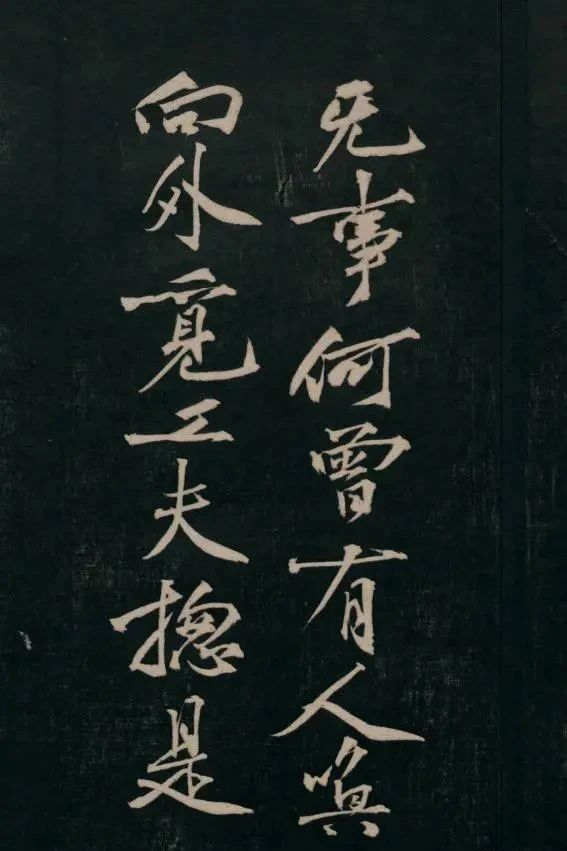 无事何曾有人
向外覔工夫揔是